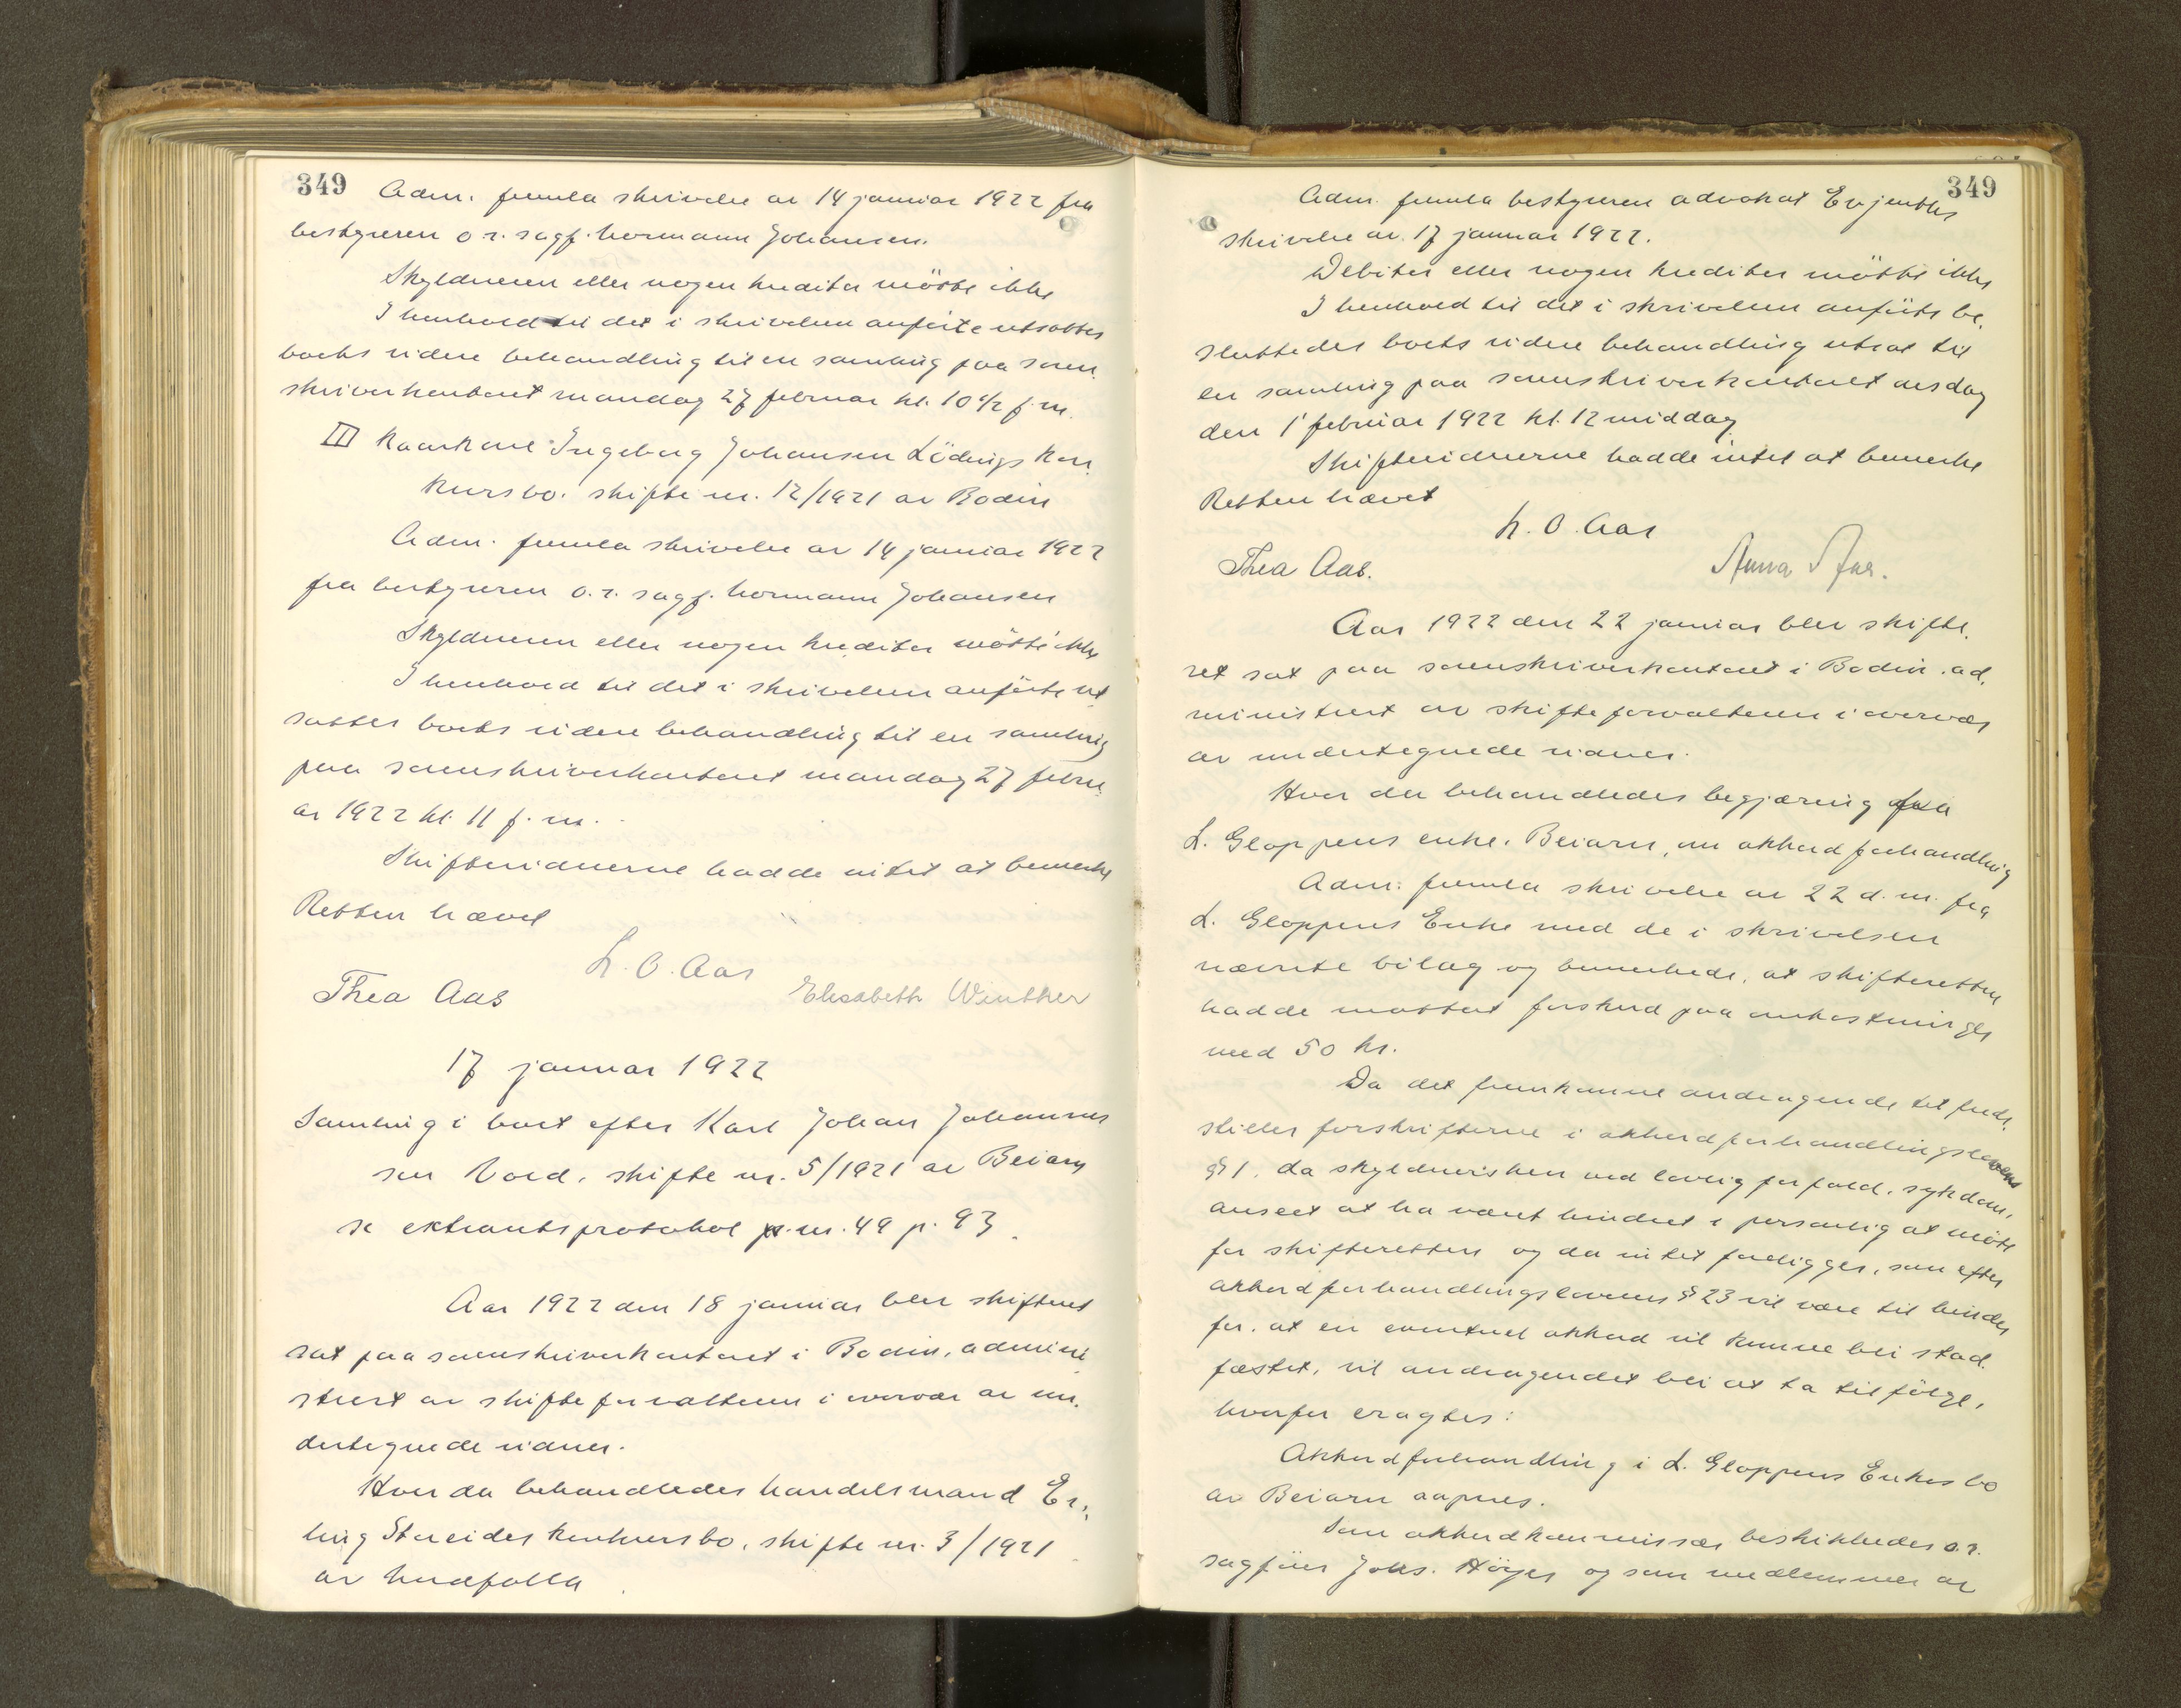 349
Adm. freml. skrivelse av 14 januar 1922 fra
bestyreren o.r. sagf. Hermann Johansen.
Skyldneren eller nogen kreditor mötte ikke
I henhold til det i skrivelsen anförte utsattes
boets videre behandling til en samling paa soren
skriverkontoret mandag 27 februar kl. 10 1/2 f.m.
III Kaarkone Ingeborg Johansen Lödings kon
kursbo. skifte nr. 12/1921 av Bodin
Adm. fremla skrivelse av 14 januar 1922
fra bestyreren o.r. sagf. Hermann Johansen
Skyldneren eller nogen kreditor mötte ikke
I henhold til det i skrivelsen anförte ut
sattes boets videre behandling til en samling
paa sorenskriverkontoret mandag 27 febru
ar 1922 kl. 11 f.m.
Skiftevidnerne hadde intet at bemerke
Retten hævet
L. O. Aas
Thea Aas Elisabeth Winther
17 januar 1922
Samling i boet efter Karl Johan Johannes
sen Vold, skifte nr. 5/1921 av Beiarn
se ekstrautsprotokol nr. 49 p. 93.
Aar 1922 den 18 januar blev skifteret
sat paa sorenskriverkontoret i Bodin, admini
strert av skifteforvalteren i overvær av un.
dertegnede vidner.
Hvor da behandledes handelsmand Er.
ling Storeides konkursbo, skifte nr. 3/1921
av Kredfolla
349
Adm. fremla bestyreren advokat Evjenths
skrivelse av 17 januar 1922.
Debitor eller nogen kreditor mötte ikke
I henhold til det i skrivelsen anförte be.
sluttedes boets videre behandling utsat til
en samling paa sorenskriverkontoret onsdag
den 1' februar 1922 kl. 12 middag
Skiftevidnerne hadde intet at bemerke
Retten hævet
L. O. Aas
Thea Aas. Anna
Aar 1922 den 22 januar blev skifte.
ret sat paa sorenskriverkontoret i Bodin. ad.
ministrert av skifteforvalteren i overvær
av undertegnede vidner.
Hvor der behandledes begjæring fra
L. Gloppens enke. Beiarn, om akkordforhandling
Adm: fremla skrivelse av 22 d.m. fra
L. Gloppens Enke med de i skrivelsen
nævnte bilag og bemerkede, at skifteretten
hadde mottat forskud paa omkostninger
med 50 kr.
Da det fremkomne andragende tilfreds.
stiller forskrifterne i akkordforhandlingslovens
§ 1. da skyldnersken ved lovlig forfald, sykdom,
ansees at ha været hindret i personlig at möte
for skifteretten og da intet foreligger, som efter
akkordforhandlingslovens § 23 vil være til hinder
for, at en eventuel akkord vil kunne bli stad.
fæstet, vil andragendet bli at ta tilfölge,
hvorfor eragtes:
Akkordforhandling i L. Gloppens Enkes bo
av Beiarn aapnes.
Som akkordkommissær beskikkedes o.r.
sagförer Johs. Höyer og som medlemmer av